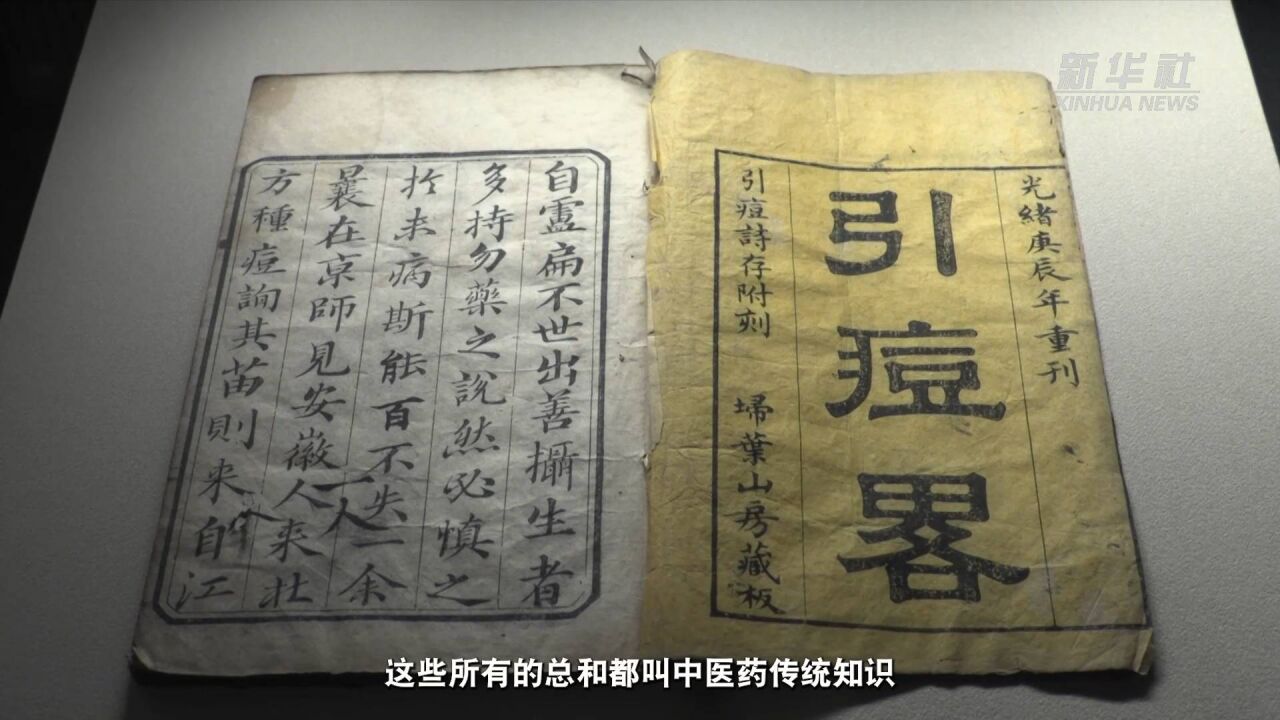 新华社
XINHUA NEWS
光緒庚辰年重刊
引痘畧
引痘詩存附刻 埽葉山房藏板
自盧扁不世出善攝生者
多持勿藥之說然必慎之
扵未病斯能百不失一余
曩在京師見安徽人来北
方種痘詢其苗則来自江
这些所有的总和都叫中医药传统知识